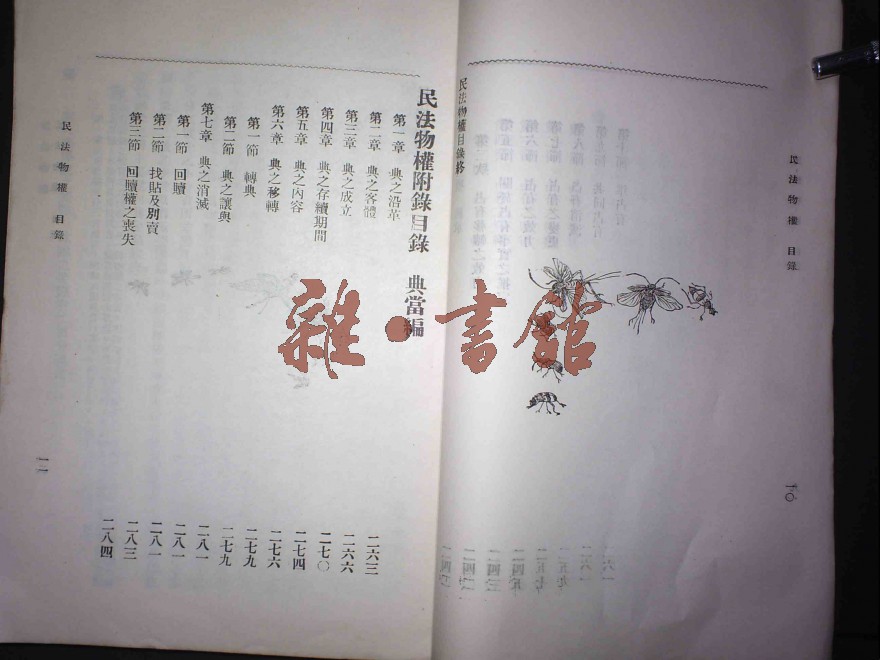 民法物權 目錄 一〇
民法物權目錄終
民法物權附錄目錄 典當編
第一章 典之沿革 二六三
第二章 典之客體 二六六
第三章 典之成立 二七〇
第四章 典之存續期間 二七四
第五章 典之內容 二七六
第六章 典之移轉 二七九
第一節 轉典 二七九
第二節 典之讓與 二八一
第七章 典之消滅 二八一
第一節 回贖 二八一
第二節 找貼及別賣 二八三
第三節 回贖權之喪失 二八四
民法物權 目錄 一一
雜·書館